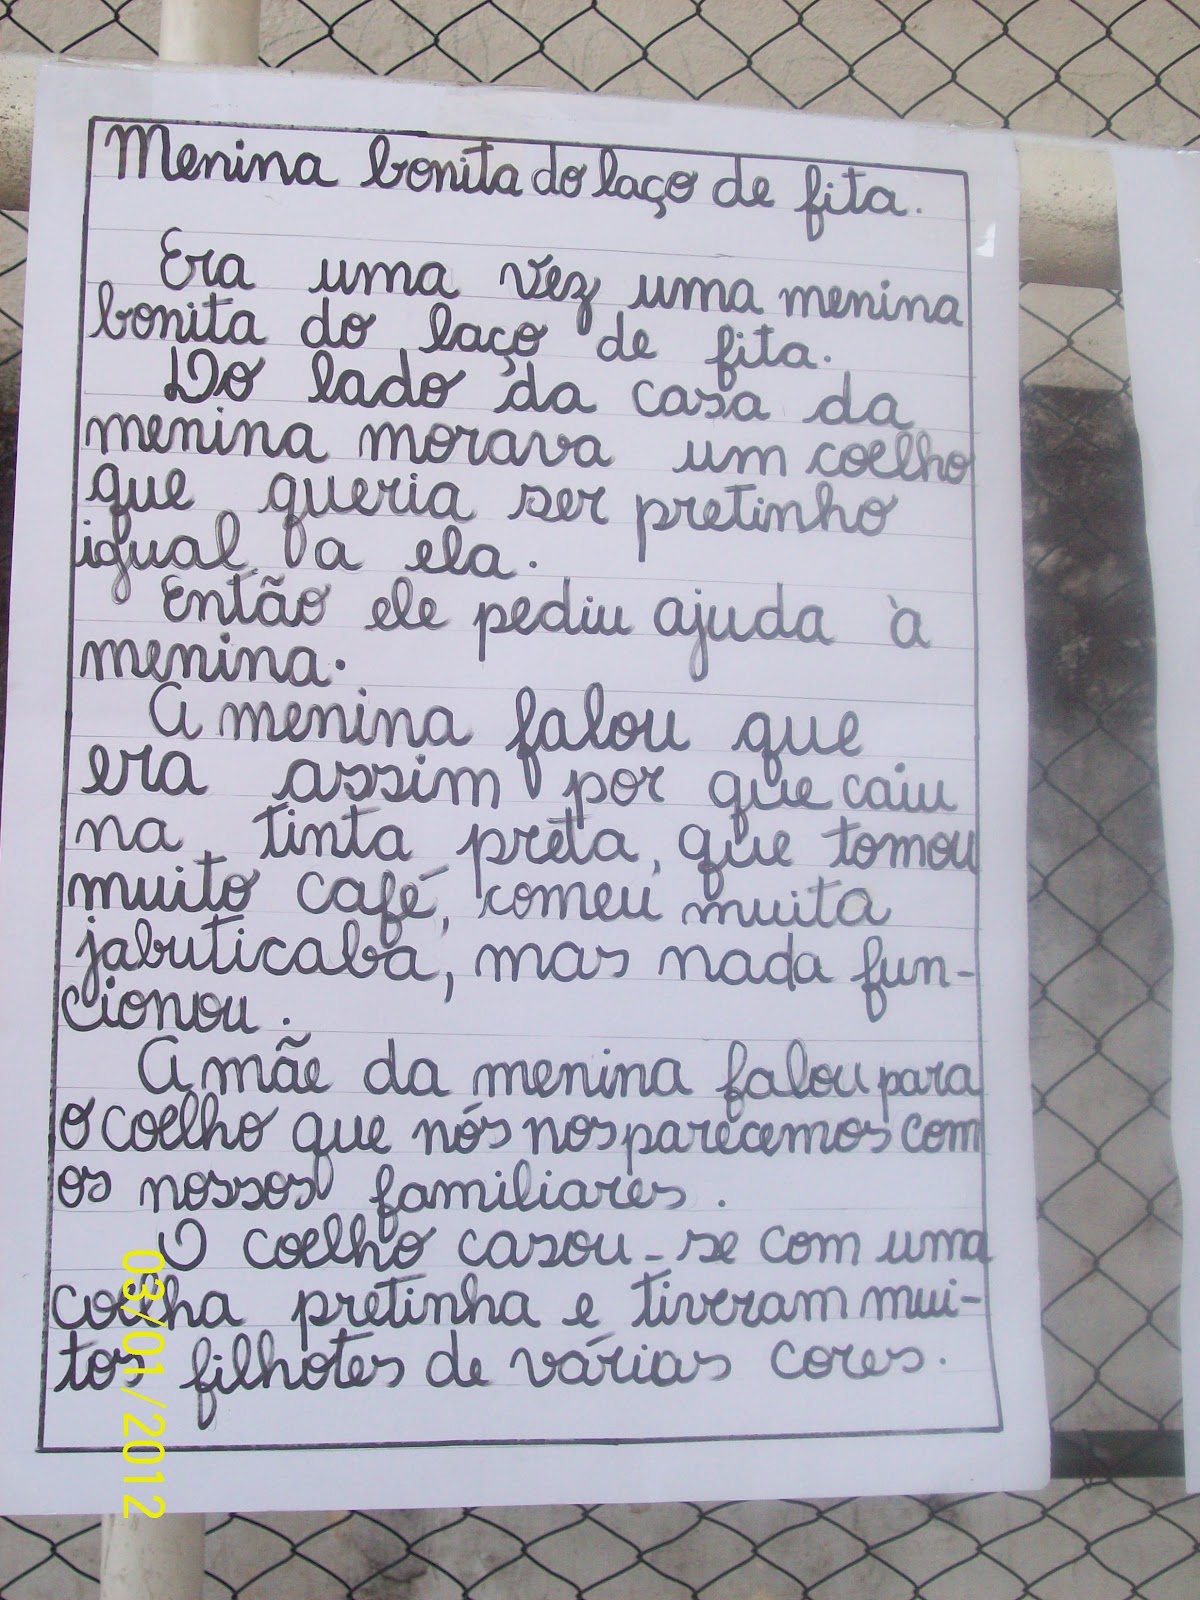 Menina bonita do laço de fita.
Era uma vez uma menina
bonita do laço de fita.
Do lado da casa da
menina morava um coelho
que queria ser pretinho
igual a ela.
Então ele pediu ajuda à
menina.
A menina falou que
era assim por que caiu
na tinta preta, que tomou
muito café, comeu muita
jabuticaba, mas nada fun-
cionou.
A mãe da menina falou para
o coelho que nós nos parecemos com
os nossos familiares.
O coelho casou-se com uma
coelha pretinha e tiveram mui-
tos filhotes de várias cores.
03/01/2012